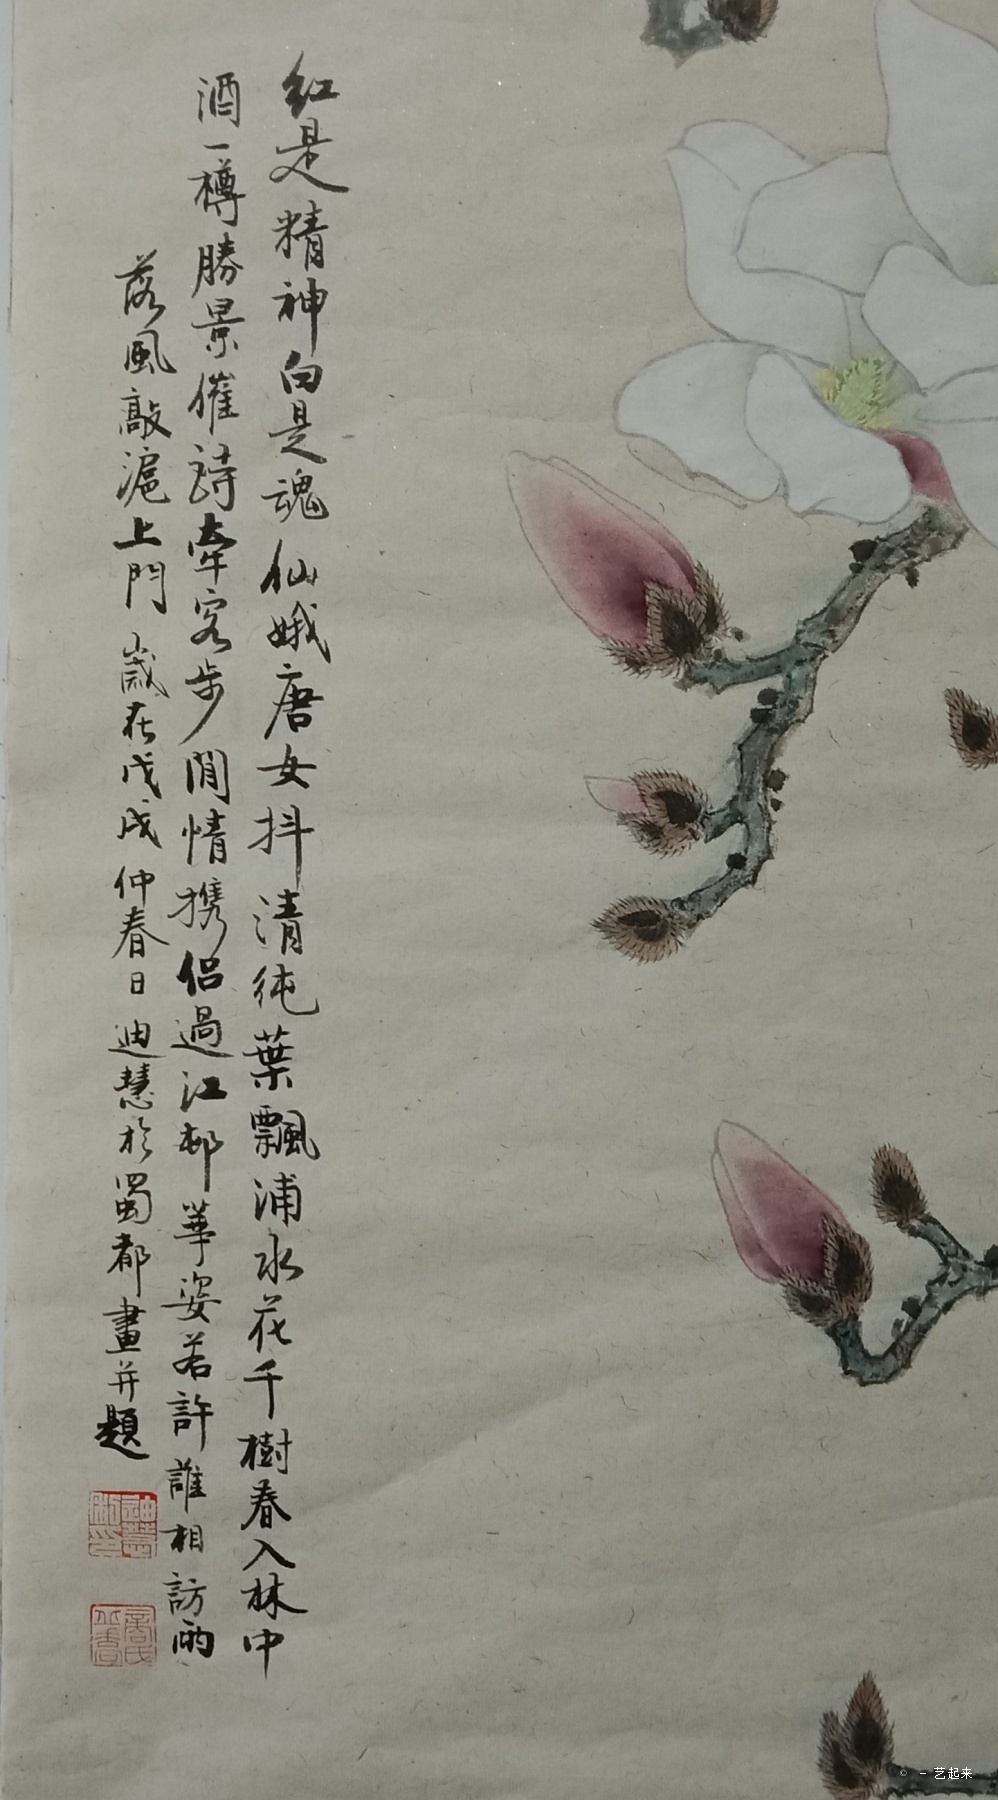 红是精神白是魂仙娥唐女抖清纯葉飄浦水花千樹春入林中
酒一樽勝景催詩牽客步閒情携侣過江邨華姿若許誰相訪雨
落風敲滬上門 歲在戊戌仲春日迪慧於蜀都畫并題
© - 艺起来